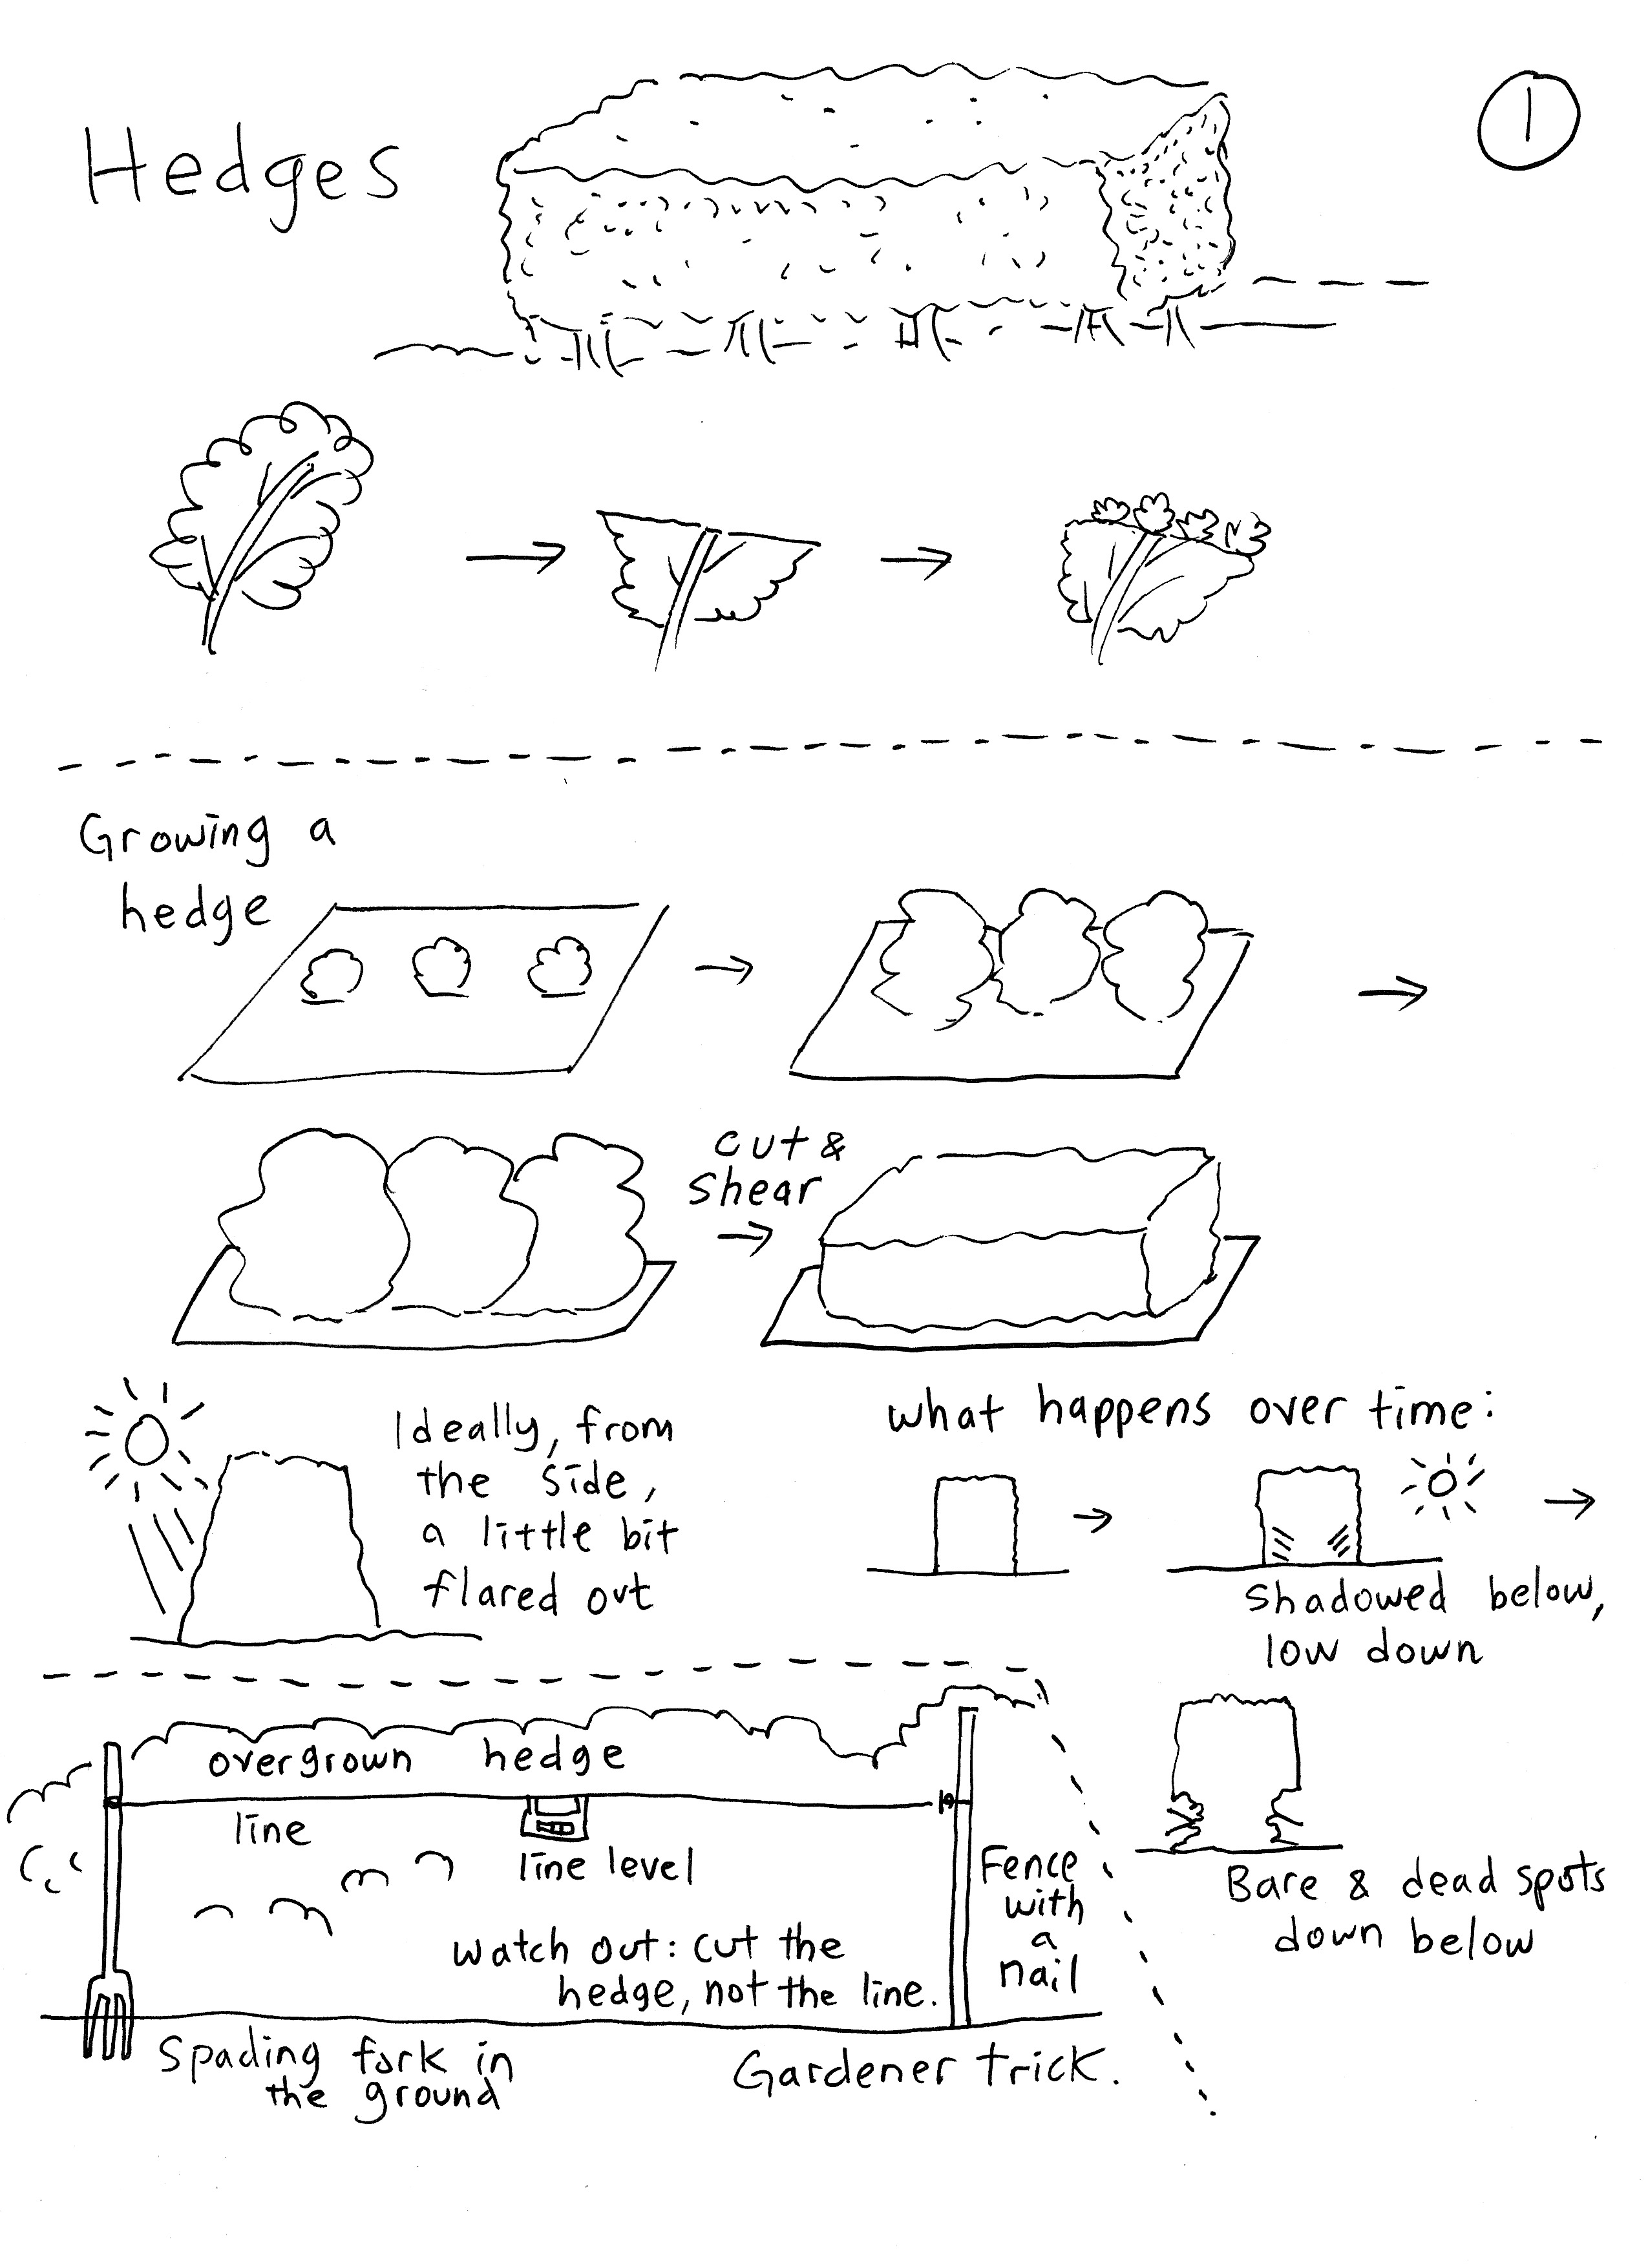 Hedges
1
Growing a
hedge
cut &
shear
Ideally, from
the side,
a little bit
flared out
what happens over time:
shadowed below,
low down
Bare & dead spots
down below
overgrown hedge
line
line level
Fence
with
a
nail
watch out: cut the
hedge, not the line.
Spading fork in
the ground
Gardener trick.